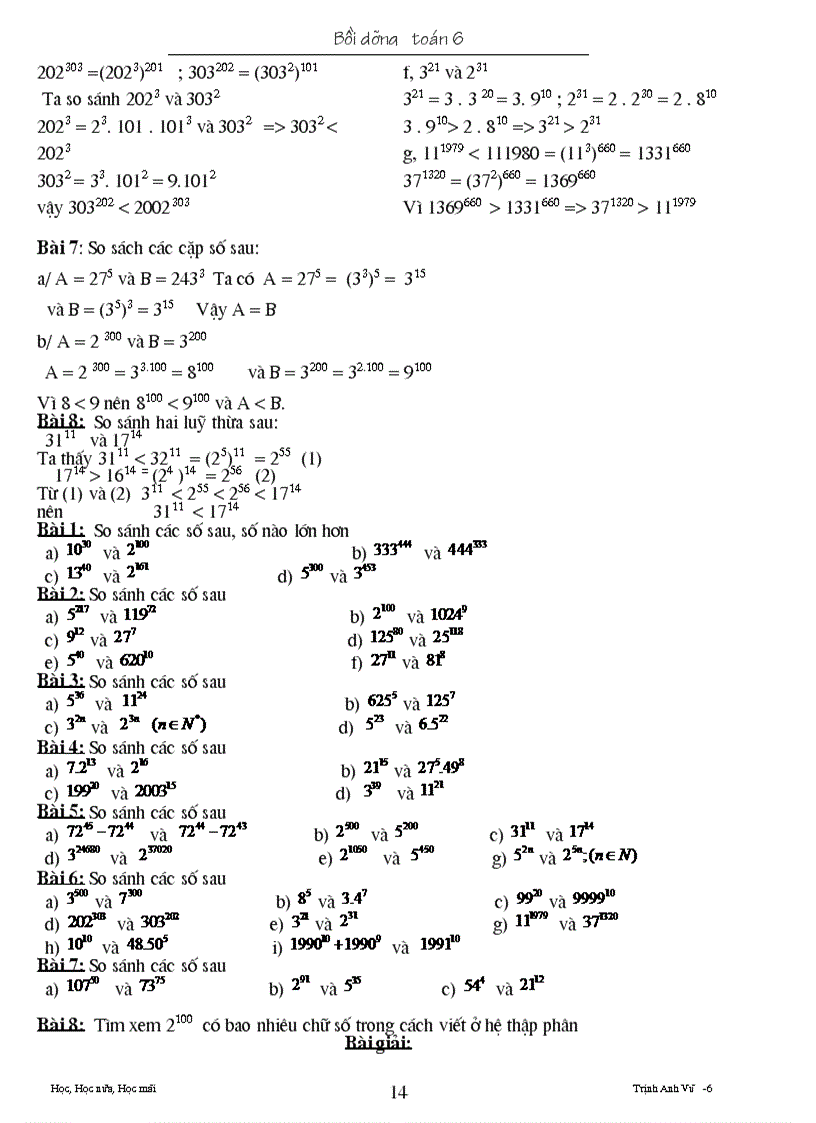 Bồi dỡng toán 6
202³⁰³ =(202³)²⁰¹ ; 303²⁰² = (303²)¹⁰¹
Ta so sánh 202³ và 303²
202³ = 2³. 101 . 101³ và 303² => 303² <
202³
303² = 3³. 101² = 9.101²
vậy 303²⁰² < 2002³⁰³
f, 3²¹ và 2³¹
3²¹ = 3 . 3 ²⁰ = 3. 9¹⁰ ; 2³¹ = 2 . 2³⁰ = 2 . 8¹⁰
3 . 9¹⁰> 2 . 8¹⁰ => 3²¹ > 2³¹
g, 11¹⁹⁷⁹ < 111980 = (11³)⁶⁶⁰ = 1331⁶⁶⁰
37¹³²⁰ = (37²)⁶⁶⁰ = 1369⁶⁶⁰
Vì 1369⁶⁶⁰ > 1331⁶⁶⁰ => 37¹³²⁰ > 11¹⁹⁷⁹
Bài 7: So sách các cặp số sau:
a/ A = 27⁵ và B = 243³ Ta có A = 27⁵ = (3³)⁵ = 3¹⁵
và B = (3⁵)³ = 3¹⁵ Vậy A = B
b/ A = 2 ³⁰⁰ và B = 3²⁰⁰
A = 2 ³⁰⁰ = 3³·¹⁰⁰ = 8¹⁰⁰ và B = 3²⁰⁰ = 3²·¹⁰⁰ = 9¹⁰⁰
Vì 8 < 9 nên 8¹⁰⁰ < 9¹⁰⁰ và A < B.
Bài 8: So sánh hai luỹ thừa sau:
31¹¹ và 17¹⁴
Ta thấy 31¹¹ < 32¹¹ = (2⁵)¹¹ = 2⁵⁵ (1)
17¹⁴ > 16¹⁴ = (2⁴ )¹⁴ = 2⁵⁶ (2)
Từ (1) và (2) 3¹¹ < 2⁵⁵ < 2⁵⁶ < 17¹⁴
nên 31¹¹ < 17¹⁴
Bài 1: So sánh các số sau, số nào lớn hơn
a) 10³⁰ và 2¹⁰⁰ b) 333⁴⁴⁴ và 444³³³
c) 13⁴⁰ và 2¹⁶¹ d) 5³⁰⁰ và 3⁴⁵³
Bài 2: So sánh các số sau
a) 5²¹⁷ và 119⁷² b) 2¹⁰⁰ và 1024⁹
c) 9¹² và 27⁷ d) 125⁸⁰ và 25¹¹⁸
e) 5⁴⁰ và 620¹⁰ f) 27¹¹ và 81⁸
Bài 3: So sánh các số sau
a) 5³⁶ và 11²⁴ b) 625⁵ và 125⁷
c) 3²ⁿ và 2³ⁿ (n∈N*) d) 5²³ và 6.5²²
Bài 4: So sánh các số sau
a) 7.2¹³ và 2¹⁶ b) 21¹⁵ và 27⁵.49⁸
c) 199²⁰ và 2003¹⁵ d) 3³⁹ và 11²¹
Bài 5: So sánh các số sau
a) 72⁴⁵ −72⁴⁴ và 72⁴⁴ −72⁴³ b) 2⁵⁰⁰ và 5²⁰⁰ c) 31¹¹ và 17¹⁴
d) 3²⁴⁶⁸⁰ và 2³⁷⁰²⁰ e) 2¹⁰⁵⁰ và 5⁴⁵⁰ g) 5²ⁿ và 2⁵ⁿ;(n∈N)
Bài 6: So sánh các số sau
a) 3⁵⁰⁰ và 7³⁰⁰ b) 8⁵ và 3.4⁷ c) 99²⁰ và 9999¹⁰
d) 202³⁰³ và 303²⁰² e) 3²¹ và 2³¹ g) 11¹⁹⁷⁹ và 37¹³²⁰
h) 10¹⁰ và 48.50⁵ i) 1990¹⁰ +1990⁹ và 1991¹⁰
Bài 7: So sánh các số sau
a) 107⁵⁰ và 73⁷⁵ b) 2⁹¹ và 5³⁵ c) 54⁴ và 21¹²
Bài 8: Tìm xem 2¹⁰⁰ có bao nhiêu chữ số trong cách viết ở hệ thập phân
Bài giải:
Học, Học nữa, Học mãi 14 Trịnh Anh Vũ -6